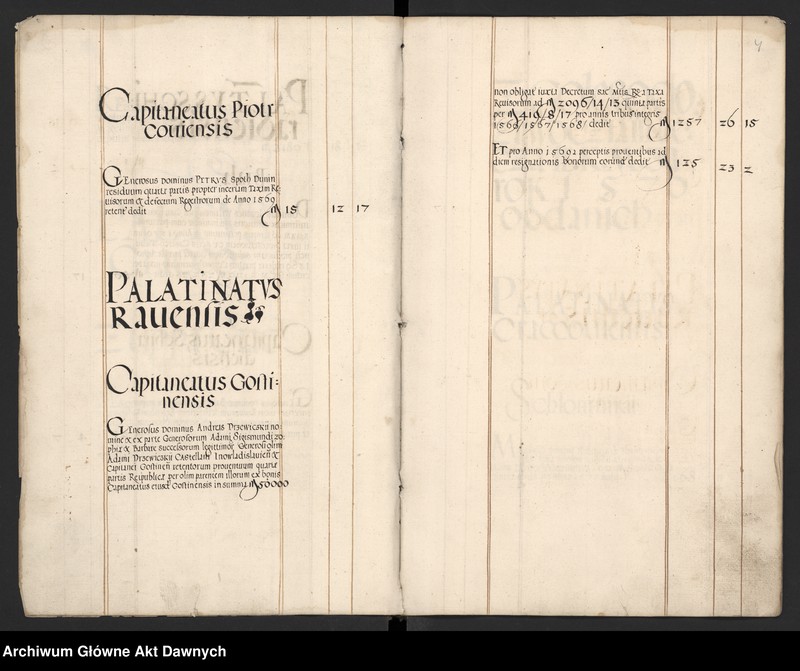 Capitaneatus Piotr
couiensis
GEnerosus Dominus PETRVS
residuum quarte partis propter incertam Taxam Re
uisorum et defectum Registrorum de Anno 1569
retent dedit m 15 12 17
PALATINATVS
Rauensis
Capitaneatus Gosti:
nensis
GEnerosus Dominus Andreas Drzewiczkii no
mine et ex parte Generosorum Adami Sigismundi zo
phiæ et Barbare successorum legittimor Generosi olim
Adami Drzewiczkii Castellani Inowladislauien et
Capitanei Gostinen retentorum prouentuum quarte
partis Reipublicæ per olim parentem illorum ex bonis
Capitaneatus eiusd Gostinensis in summa m 50000
4
non obligat iuxta Decretum sac Mtis Re a Taxa
Reuisorum ad m 2096/14/13 quinta partis
per m 419/8/17 pro annis tribus integris
1566/1567/1568/ dedit m 1257 26 15
ET pro Anno 1569 perceptis prouentibus ad
diem resignationis bonorum eorund dedit m 125 23 2
Archiwum Główne Akt Dawnych